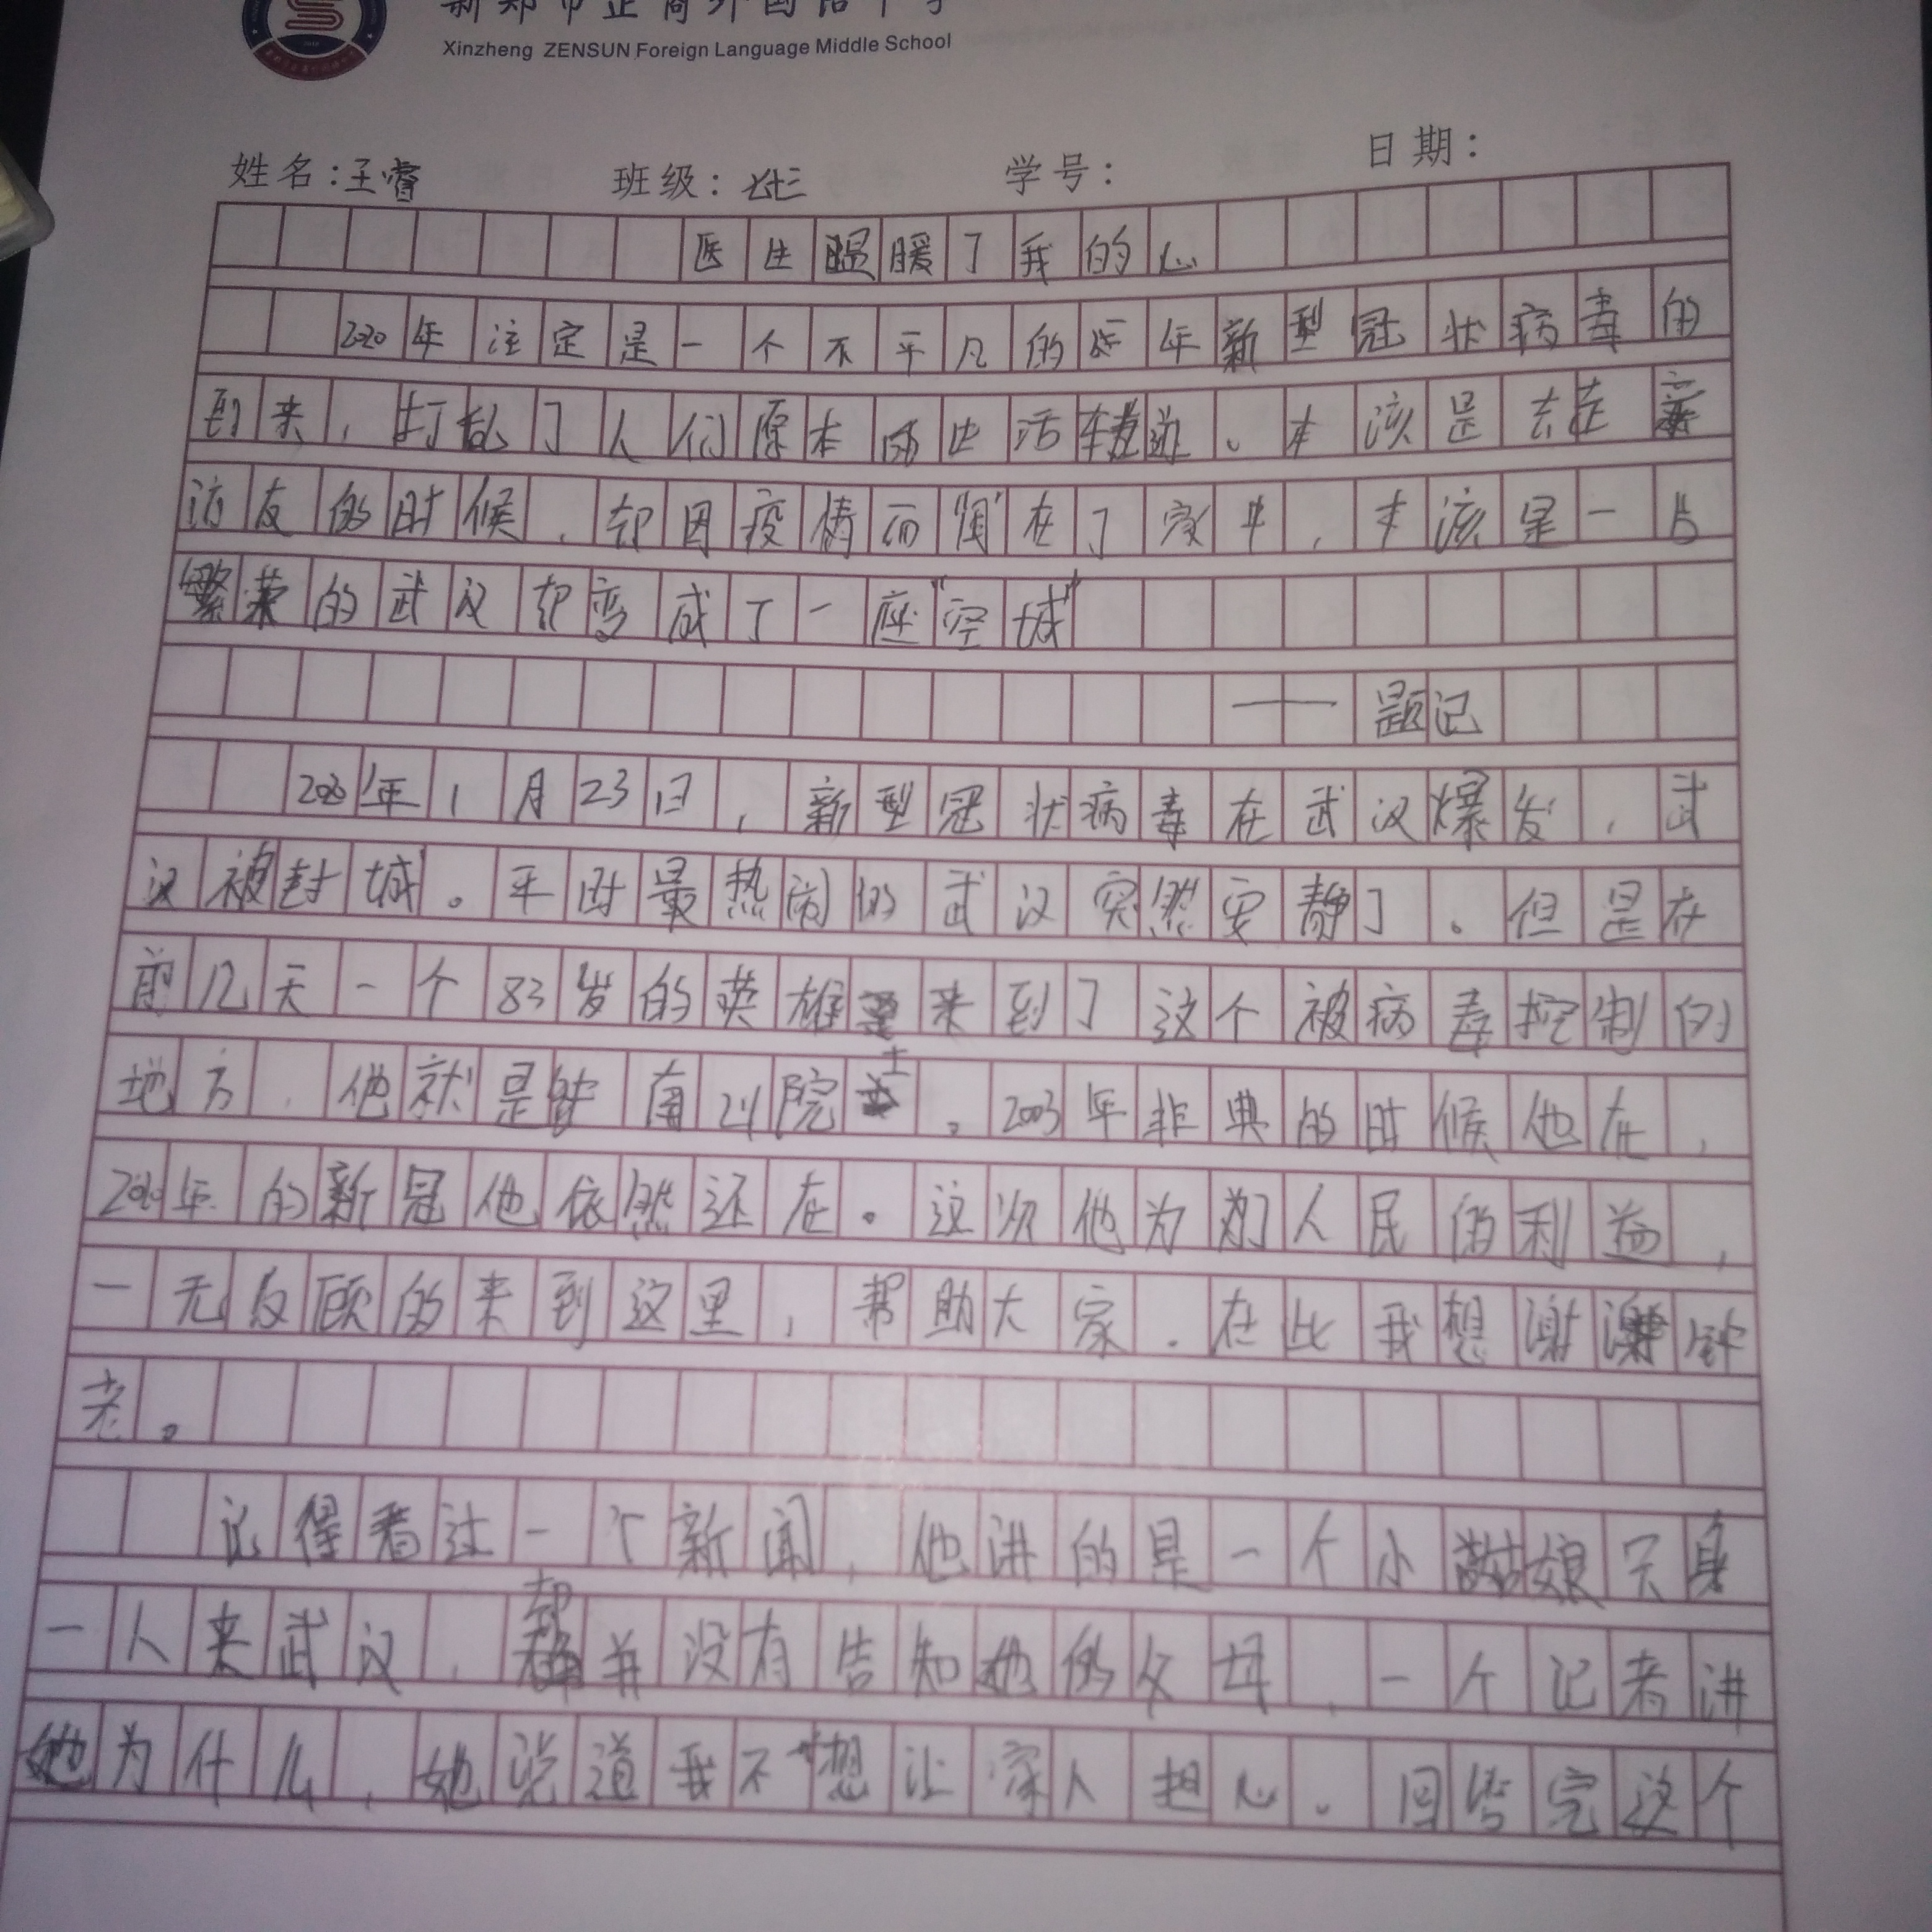 新郑市正商外国语中学
Xinzheng ZENSUN Foreign Language Middle School
姓名:王睿 班级: 学号: 日期:
医生温暖了我的心
2020年注定是一个不平凡的一年新型冠状病毒的
到来,打乱了人们原本的生活轨道。本该是去走亲
访友的时候,却因疫情而"闷"在了家中,本该是一片
繁荣的武汉却变成了一座"空城"
——题记
2020年1月23日,新型冠状病毒在武汉爆发,武
汉被封城。平时最热闹的武汉突然安静了。但是在
前几天一个83岁的英雄来到了这个被病毒控制的
地方,他就是钟南山院士。2003年非典的时候他在,
2020年的新冠他依然还在。这次他为了人民的利益,
一无反顾的来到这里,帮助大家.在此我想谢谢钟
老。
记得看过一个新闻,他讲的是一个小姑娘只身
一人来武汉,却并没有告知她的父母,一个记者讲
她为什么,她说道我不想让家人担心。回答完这个